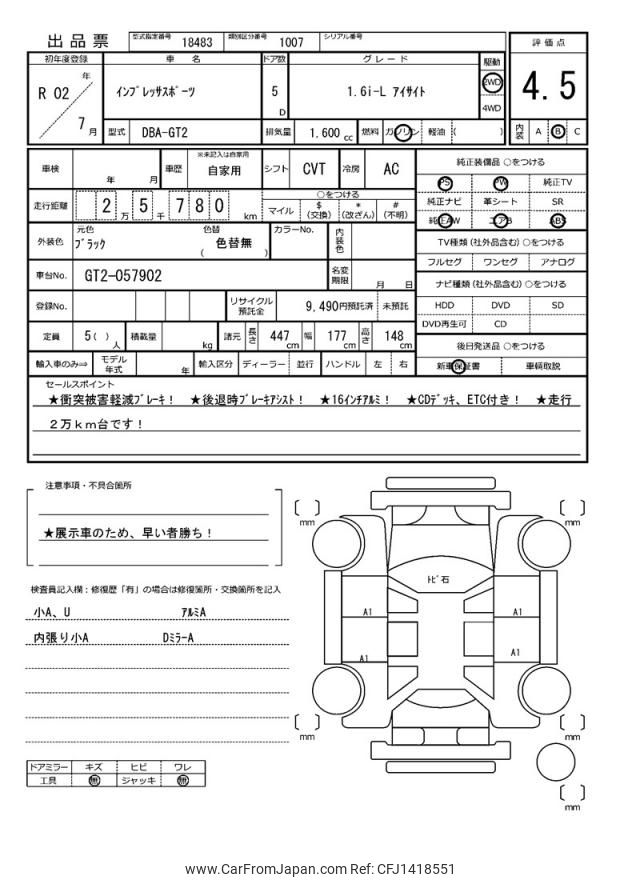 出品票 型式指定番号 18483 類別区分番号 1007 シリアル番号
初年度登録 車 名 ドア数 グレード 駆動 評価点
R 02 年 7 月
インプレッサスポーツ 5 D 1.6i-L アイサイト 2WD 4WD 4.5
型式 DBA-GT2 排気量 1,600 cc 燃料 ガソリン 軽油 ( ) 内装 A B C
車検 年 月 車歴 ※未記入は自家用 自家用 シフト CVT 冷房 AC
純正装備品 ○をつける
PS PW 純正TV
純正ナビ 革シート SR
純正AW エアB ABS
走行距離 2 万 5 千 7 8 0 km
○をつける
マイル $ (交換) * (改ざん) # (不明)
外装色 元色 ブラック 色替 色替無 ( ) カラーNo. 内装色
TV種類(社外品含む)○をつける
フルセグ ワンセグ アナログ
車台No. GT2-057902 名変期限 月 日
ナビ種類(社外品含む)○をつける
HDD DVD SD
DVD再生可 CD
登録No. リサイクル預託金 9,490円預託済 未預託
定員 5( ) 人 積載量 kg 諸元 長さ 447 cm 幅 177 cm 高さ 148 cm
後日発送品 ○をつける
新車保証書 車輌取説
輸入車のみ⇒ モデル年式 年 輸入区分 ディーラー 並行 ハンドル 左 右
セールスポイント
★衝突被害軽減ブレーキ! ★後退時ブレーキアシスト! ★16インチアルミ! ★CDデッキ、ETC付き! ★走行
2万km台です!
注意事項・不具合箇所
★展示車のため、早い者勝ち!
検査員記入欄:修復歴「有」の場合は修復箇所・交換箇所を記入
小A、U アルミA
内張り小A DミラーA
ドアミラー キズ ヒビ ワレ
工具 無 ジャッキ 無
mm
mm
トビ石
A1
A1
A1
A1
mm
mm
mm
www.CarFromJapan.com Ref: CFJ1418551